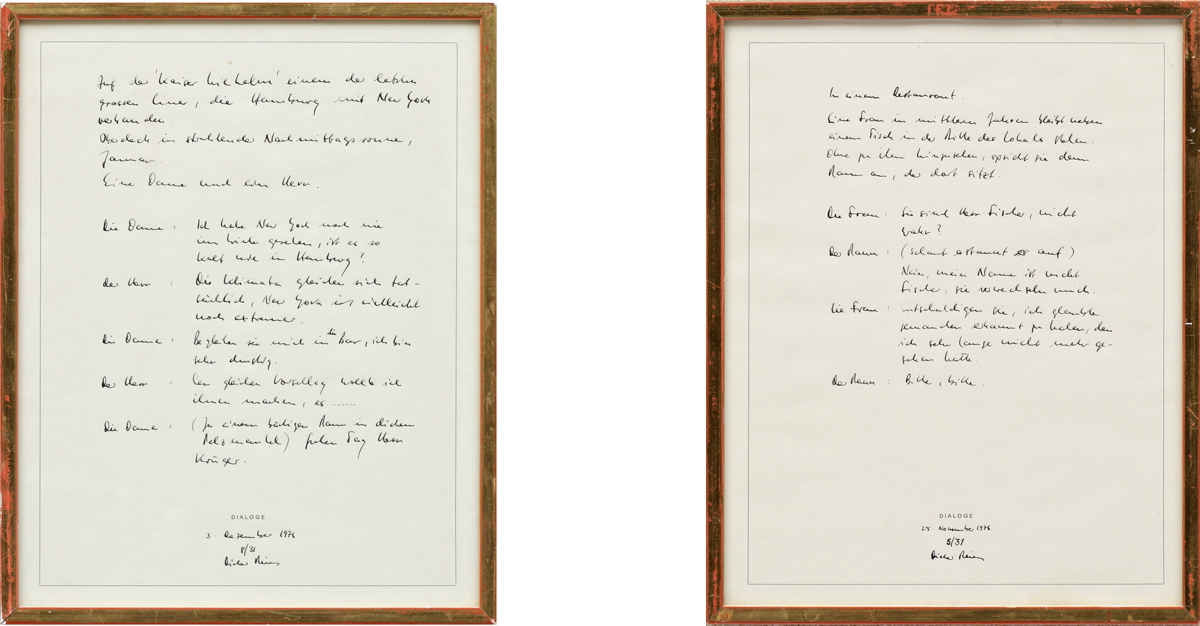 Auf der 'Kaiser Wilhelm' einem der letzten
grossen Liner, die Hamburg mit New York
verbanden.
Oberdeck in strahlender Nachmittagssonne,
Januar.
Eine Dame und ein Herr.
Die Dame : Ich habe New York noch nie
im Winter gesehen, ist es so
kalt wie in Hamburg?
Der Herr : Die Klimata gleichen sich tat-
sächlich, New York ist vielleicht
noch extremer.
Die Dame : Begleiten sie mich in die Bar, ich bin
sehr durstig.
Der Herr : Den gleichen Vorschlag wollte ich
ihnen machen, es ......
Die Dame : (Zu einem bärtigen Mann in dickem
Pelzmantel) guten Tag Herr
Krüger.
DIALOGE
5. Dezember 1976
8/31
Dieter Meier
In einem Restaurant.
Eine Frau in mittleren Jahren bleibt neben
einem Tisch in der Mitte des Lokals stehen.
Ohne zu ihm hinzusehen, spricht sie den
Mann an, der dort sitzt.
Die Frau : Sie sind Herr Fischer, nicht
wahr?
Der Mann : (schaut erstaunt auf)
Nein, mein Name ist nicht
Fischer, sie verwechseln mich.
Die Frau : entschuldigen sie, ich glaubte
jemanden erkannt zu haben, den
ich sehr lange nicht mehr ge-
sehen hatte.
Der Mann : Bitte, bitte.
DIALOGE
25. November 1976
5/31
Dieter Meier